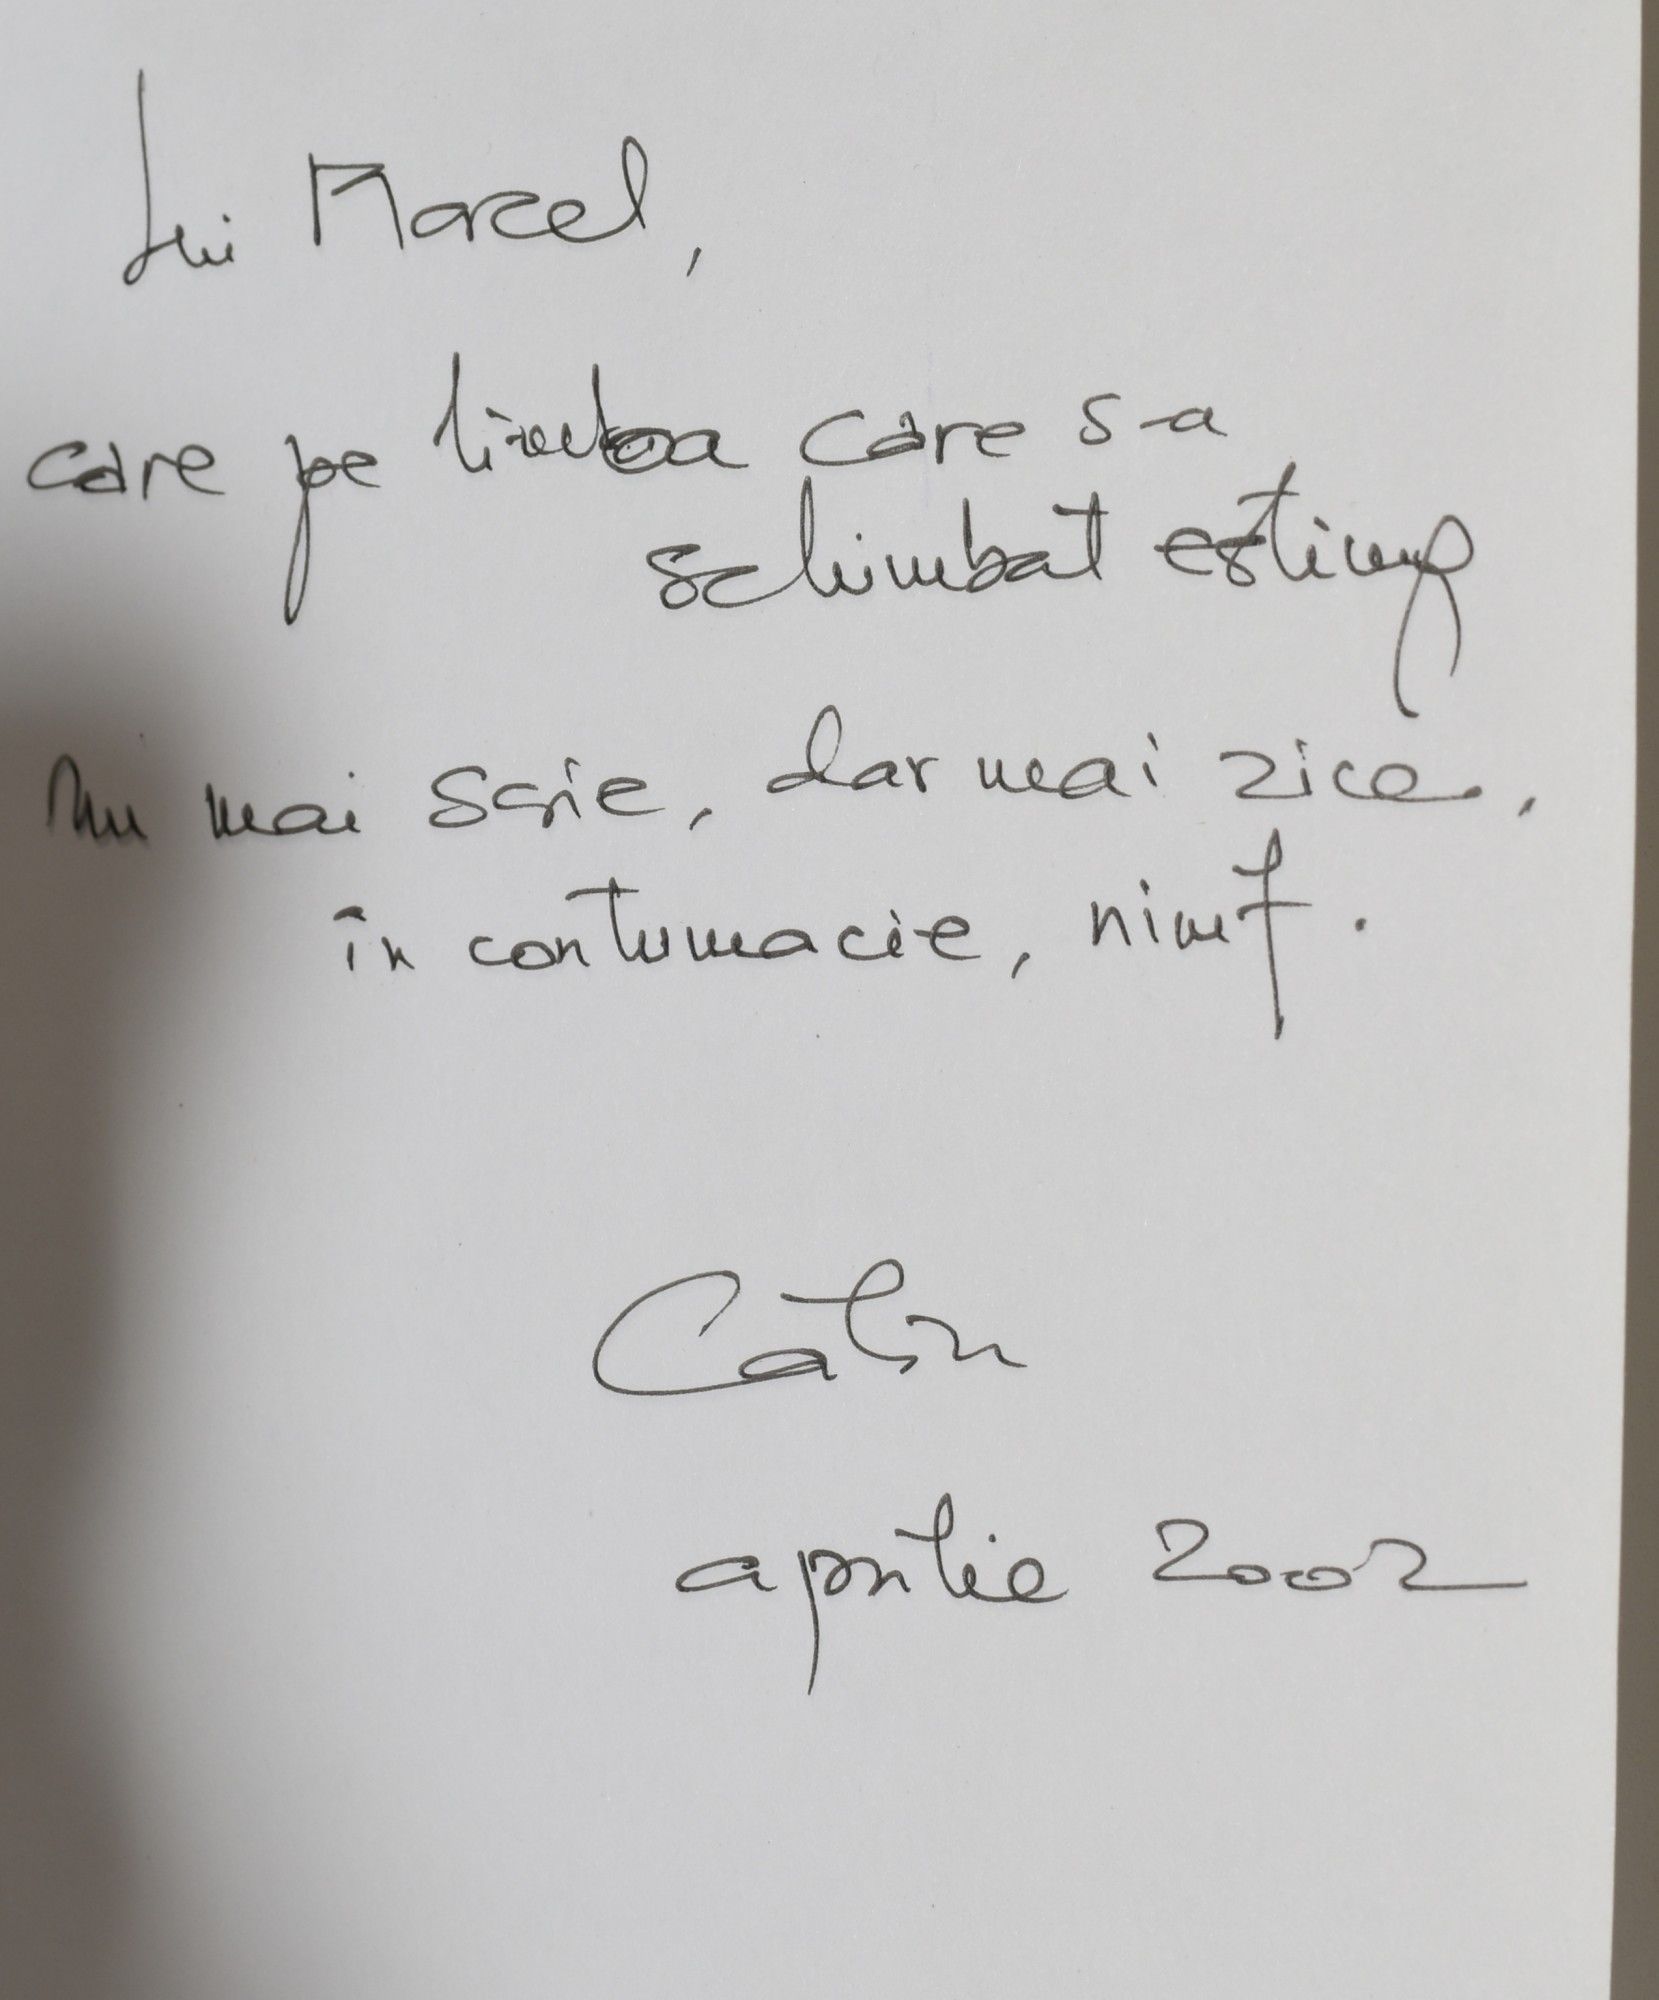 Lui Marcel,
care pe limba care s-a
schimbat estimp
nu mai scrie, dar mai zice,
în contumacie, nimf.
Călin
aprilie 2002